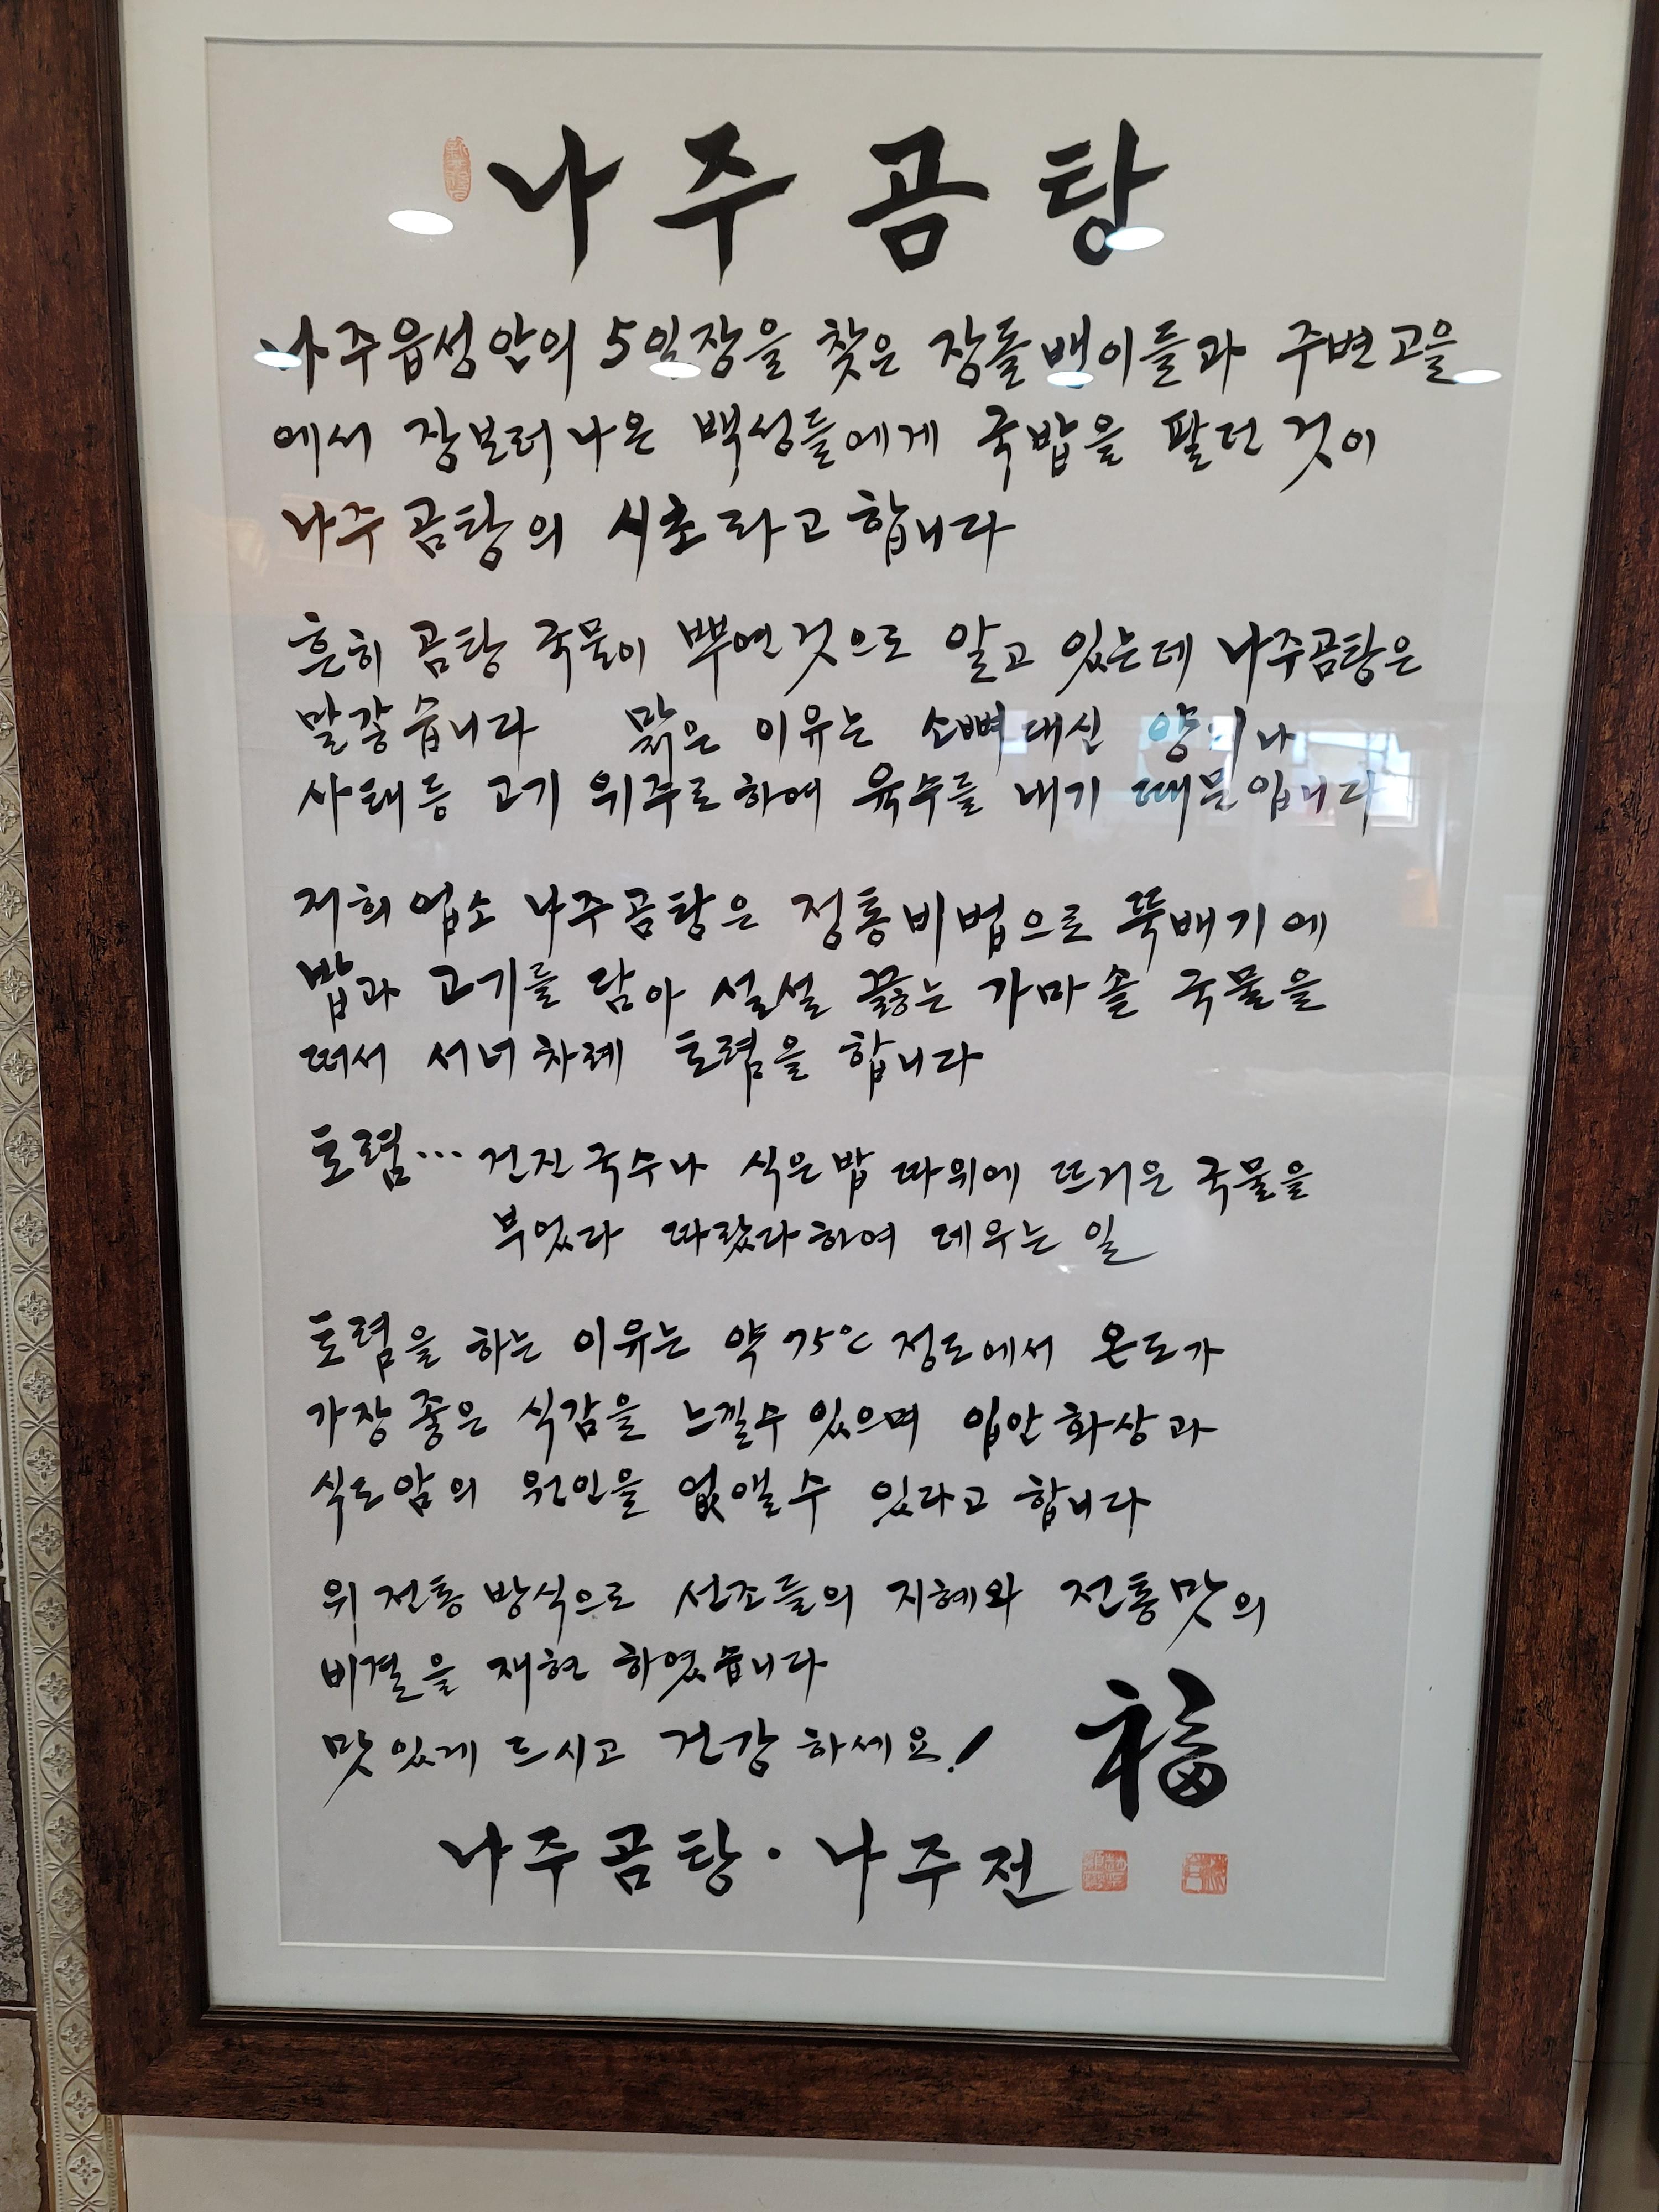 나주곰탕
나주읍성안의 5일장을 찾은 장돌뱅이들과 주변고을
에서 장보러 나온 백성들에게 국밥을 팔던 것이
나주곰탕의 시초라고 합니다
흔히 곰탕 국물이 뿌연것으로 알고 있는데 나주곰탕은
말갛습니다 맑은 이유는 소뼈대신 양지나
사태등 고기 위주로하여 육수를 내기 때문입니다
저희업소 나주곰탕은 정통비법으로 뚝배기에
밥과 고기를 담아 설설 끓는 가마솥 국물을
떠서 서너차례 토렴을 합니다
토렴… 건진국수나 식은밥 따위에 뜨거운 국물을
부었다 따랐다하여 데우는 일
토렴을 하는 이유는 약 75℃ 정도에서 온도가
가장좋은 식감을 느낄수 있으며 입안화상과
식도암의 원인을 없앨수 있다고 합니다
위 전통방식으로 선조들의 지혜와 전통맛의
비결을 재현 하였습니다
맛있게 드시고 건강하세요!
福
나주곰탕·나주전